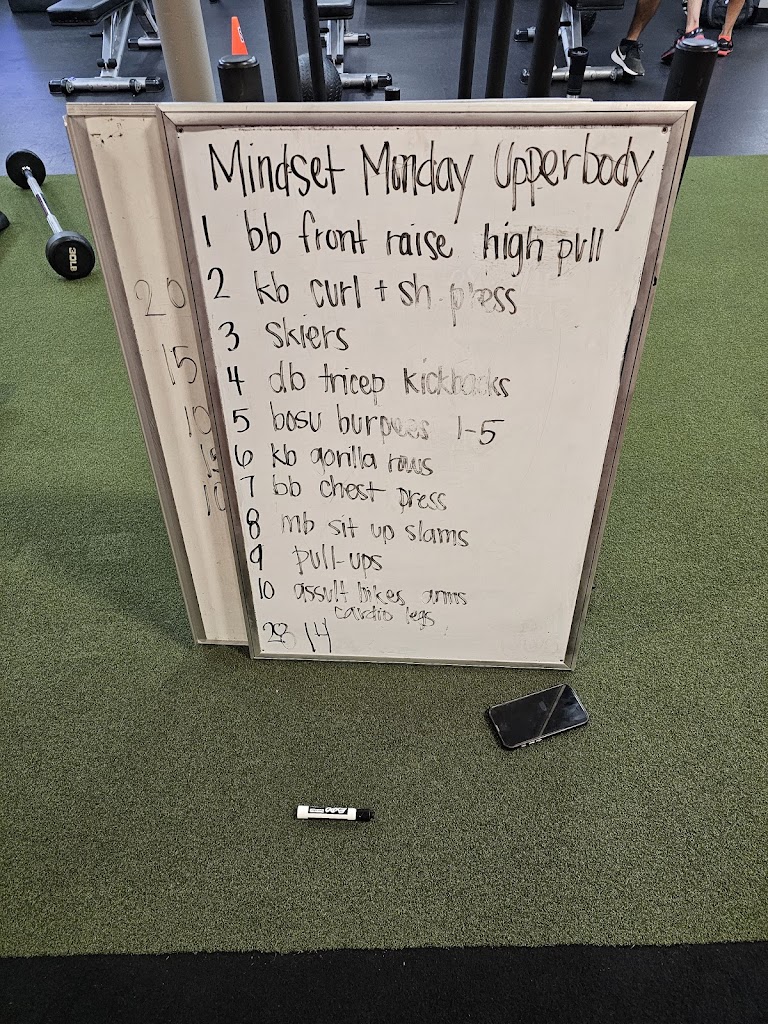 Mindset Monday Upperbody
1 bb front raise high pull
2 kb curl + sh press
3 skiers
4 db tricep kickbacks
5 bosu burpees 1-5
6 kb gorilla rows
7 bb chest press
8 mb sit up slams
9 pull-ups
10 assult bikes arms
cardio legs
14
20
15
10
15
10
30LB
EXPO